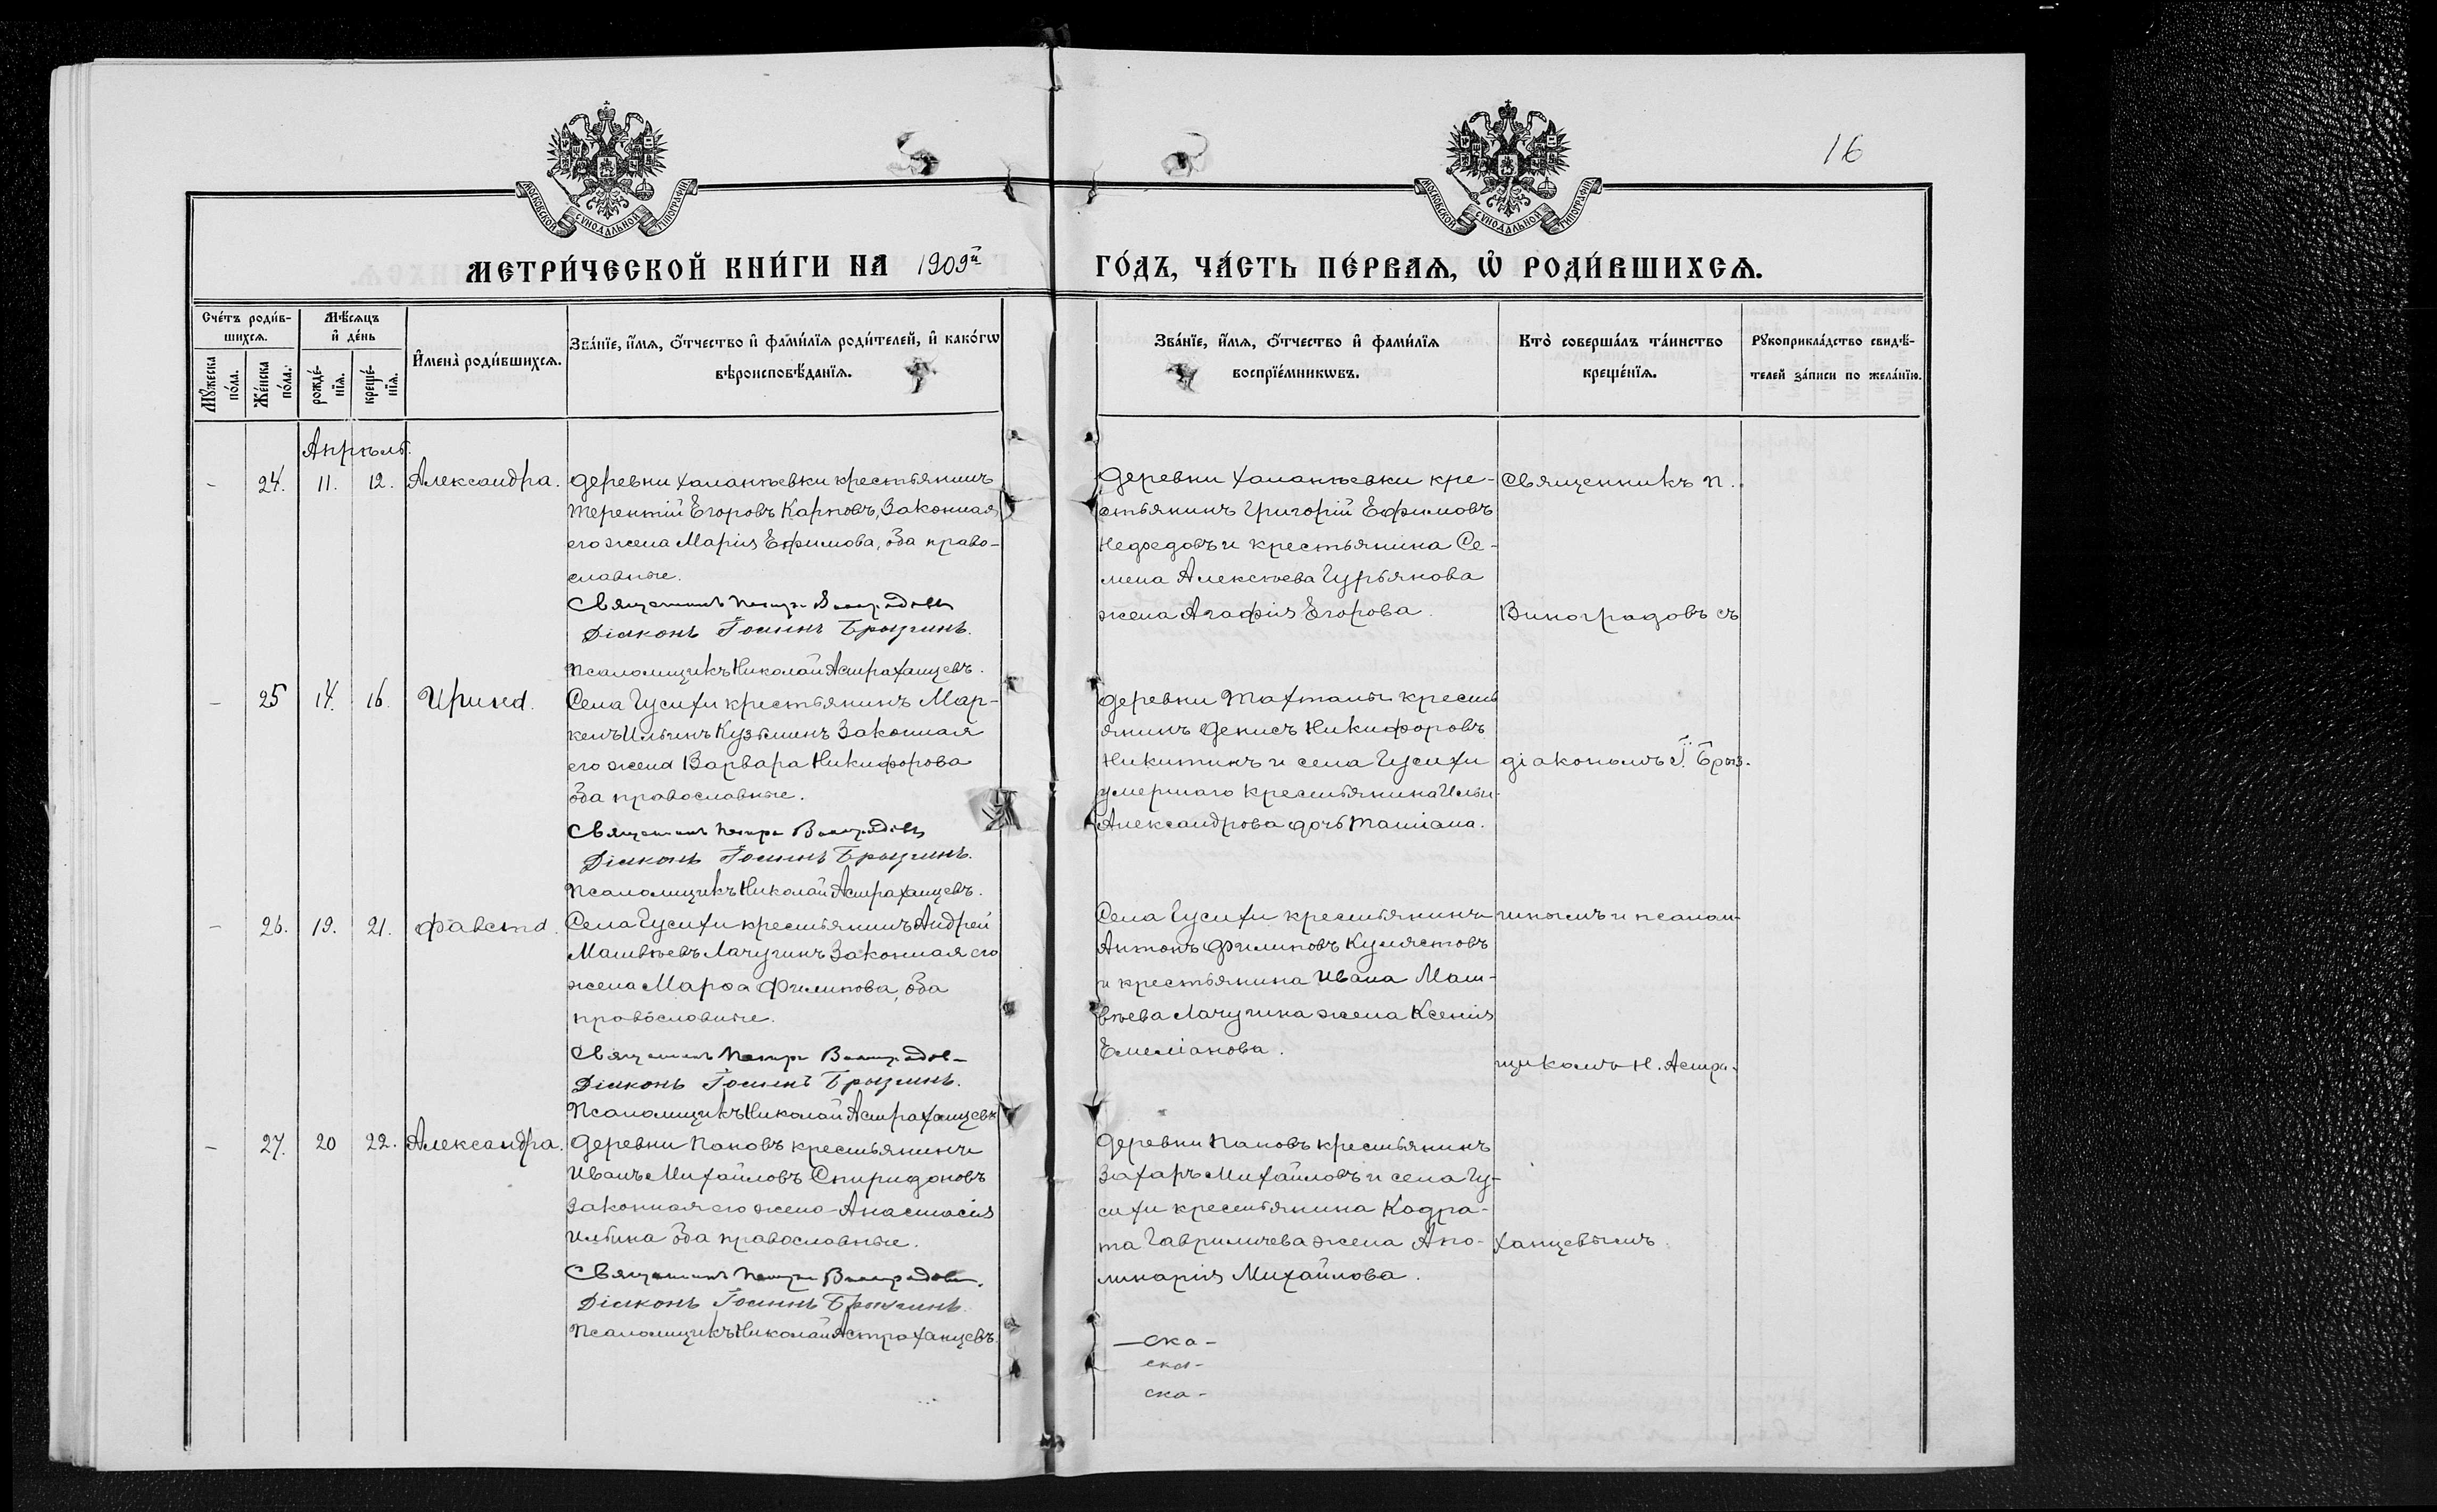 16
МОСКОВСКОЙ СѴНОДАЛЬНОЙ ТИПОГРАФІИ
МОСКОВСКОЙ СѴНОДАЛЬНОЙ ТИПОГРАФІИ
МЕТРИ́ЧЕСКОЙ КНИ́ГИ НА 1909й
ГО́ДЪ, ЧА́СТЬ ПЕ́РВАѦ, Ѡ҆ РОДИ́ВШИХСѦ.
Сче́тъ роди́в-
шихсѧ.
Мꙋ́жеска
по́ла.
Же́нска
по́ла.
Мѣ́сѧцъ
и҆ де́нь
рожде́-
нїѧ.
креще́-
нїѧ.
И҆мена̀ роди́вшихсѧ.
Зва́нїе, и҆́мѧ, ѻ҆́тчество и҆ фами́лїѧ роди́телей, и҆ како́гѡ
вѣроисповѣ́данїѧ.
Зва́нїе, и҆́мѧ, ѻ҆́тчество и҆ фами́лїѧ
воспрїе́мникѡвъ.
Кто̀ соверша́лъ та́инство
креще́нїѧ.
Рꙋкоприкла́дство свидѣ́-
телей за́писи по жела́нїю.
Апрѣль.
- 24. 11. 12. Александра.
деревни Халанѣевки крестьянинъ
Терентій Егоровъ Карповъ, Законная
его жена Марія Ефимова, оба право-
славные.
Священникъ Петръ Виноградовъ
Діаконъ Іоаннъ Брызгинъ.
Псаломщикъ Николай Астраханцевъ.
Деревни Халанѣевки кре-
стьянинъ Григорій Ефимовъ
и крестьянина Се-
мена Алексѣева Гурьянова
жена Агафія Егорова.
Священникъ П.
Виноградовъ съ
- 25 14. 16. Ирина.
Села Гусихи крестьянинъ Мар-
келъ Ильинъ Кузьминъ Законная
его жена Варвара Никифорова
оба православные.
Священникъ Петръ Виноградовъ
Діаконъ Іоаннъ Брызгинъ.
Псаломщикъ Николай Астраханцевъ.
деревни Тахталы кресть
янинъ Денисъ Никифоровъ
Никитинъ и села Гусихи
умершаго крестьянина Ильи
Александрова дочь Татіана.
діакономъ І. Брыз-
- 26. 19. 21. Фавста.
Села Гусихи крестьянинъ Андрей
Матвѣевъ Лачугинъ Законная его
жена Марѳа Филипова, оба
православные.
Священникъ Петръ Виноградовъ
Діаконъ Іоаннъ Брызгинъ.
Псаломщикъ Николай Астраханцевъ
Села Гусихи крестьянинъ
Антонъ Филиповъ Кулястовъ
и крестьянина Ивана Мат-
вѣева Лачугина жена Ксенія
Емеліанова.
гинымъ и псалом-
щикомъ Н. Астра-
- 27. 20 22. Александра.
деревни Пановъ крестьянинъ
Иванъ Михайловъ Спиридоновъ
Законная его жена Анастасія
Ильина оба православные.
Священникъ Петръ Виноградовъ.
Діаконъ Іоаннъ Брызгинъ
Псаломщикъ Николай Астраханцевъ
деревни Пановъ крестьянинъ
Захаръ Михайловъ и села Гу-
сихи крестьянина Кодра-
та Гавриличева жена Апо-
линарія Михайлова.
ханцевымъ.
—ска-
ска-
ска-